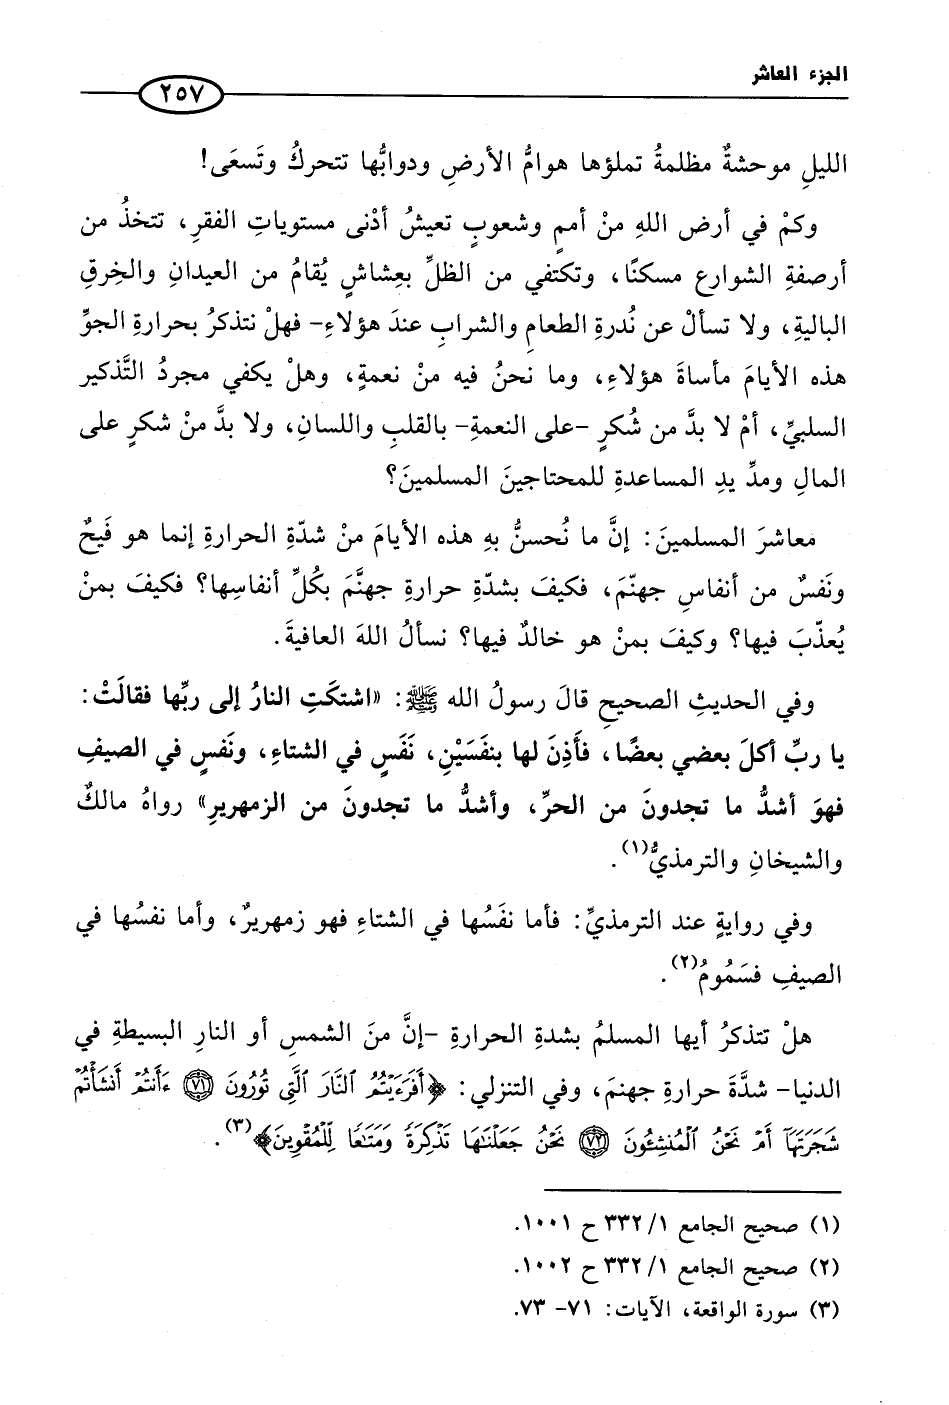 الجزء العاشر
٢٥٧
الليلِ موحشةٌ مظلمةُ تملؤها هوامُّ الأرضِ ودوابُّها تتحركُ وتَسعَى!
وكمْ في أرض اللهِ منْ أممٍ وشعوبٍ تعيشُ أدْنى مستوياتِ الفقرِ، تتخذُ من
أرصفةِ الشوارعِ مسكنًا، وتكتفي من الظلِّ بعِشاشٍ يُقامُ من العيدانِ والخِرقِ
الباليةِ، ولا تسألْ عن نُدرةِ الطعامِ والشرابِ عندَ هؤلاءِ- فهلْ نتذكرُ بحرارةِ الجوِّ
هذه الأيامَ مأساةَ هؤلاءِ، وما نحنُ فيه منْ نعمةٍ، وهلْ يكفي مجردُ التَّذكير
السلبيِّ، أمْ لا بدَّ من شُكرٍ -على النعمةِ- بالقلبِ واللسانِ، ولا بدَّ منْ شكرٍ على
المالِ ومدِّ يدِ المساعدةِ للمحتاجينَ المسلمينَ؟
معاشرَ المسلمينَ: إنَّ ما نُحسنُّ بهِ هذه الأيامَ منْ شدّةِ الحرارةِ إنما هو فَيحٌ
ونَفسٌ من أنفاسِ جهنّمَ، فكيفَ بشدّةِ حرارةِ جهنَّمَ بكُلِّ أنفاسِها؟ فكيفَ بمنْ
يُعذّبَ فيها؟ وكيفَ بمنْ هو خالدٌ فيها؟ نسألُ اللهَ العافيةَ.
وفي الحديثِ الصحيحِ قالَ رسولُ الله ﷺ: «اشتكَتِ النارُ إلى ربِّها فقالَتْ:
يا ربِّ أكلَ بعضي بعضًا، فأَذِنَ لها بنفَسَيْنِ، نَفَسٍ في الشتاءِ، ونَفسٍ في الصيفِ
فهوَ أشدُّ ما تجدونَ من الحرِّ، وأشدُّ ما تجدونَ من الزمهريرِ» رواهُ مالكٌ
والشيخانِ والترمذيُّ(١).
وفي روايةٍ عند الترمذيِّ: فأما نفَسُها في الشتاءِ فهو زمهريرٌ، وأما نفسُها في
الصيفِ فسَمُومُ(٢).
هلْ تتذكرُ أيها المسلمُ بشدةِ الحرارةِ -إنَّ منَ الشمسِ أو النارِ البسيطةِ في
الدنيا- شدَّةَ حرارةِ جهنمَ، وفي التنزلي: ﴿أَفَرَءَيْتُمُ ٱلنَّارَ ٱلَّتِى تُورُونَ ٧١ ءَأَنتُمْ أَنشَأْتُمْ
شَجَرَتَهَآ أَمْ نَحْنُ ٱلْمُنشِـُٔونَ ٧٢ نَحْنُ جَعَلْنَـٰهَا تَذْكِرَةً وَمَتَـٰعًا لِّلْمُقْوِينَ﴾(٣).
(١) صحيح الجامع ١/ ٣٣٢ ح ١٠٠١.
(٢) صحيح الجامع ١/ ٣٣٢ ح ١٠٠٢.
(٣) سورة الواقعة، الآيات: ٧١- ٧٣.